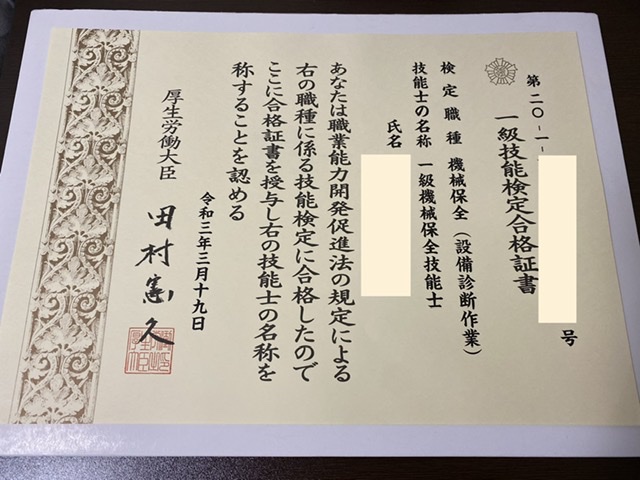 第二〇-一-
号
一級技能検定合格証書
検定職種 機械保全(設備診断作業)
技能士の名称 一級機械保全技能士
氏名
あなたは職業能力開発促進法の規定による
右の職種に係る技能検定に合格したので
ここに合格証書を授与し右の技能士の名称を
称することを認める
令和三年三月十九日
厚生労働大臣 田村憲久